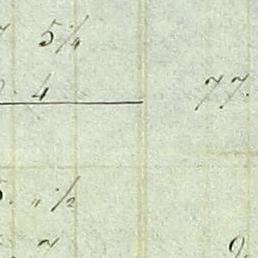 5 1/4
4
77.
" 1/2
7
9